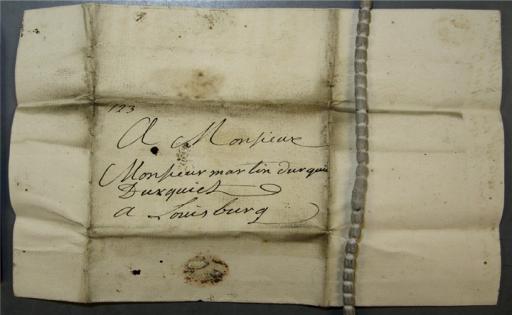 123
A Monsieur
Monsieur martin durquie
Duxquiet
a Louisburg